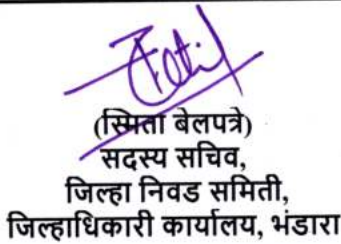 (स्मिता बेलपत्रे)
सदस्य सचिव,
जिल्हा निवड समिती,
जिल्हाधिकारी कार्यालय, भंडारा